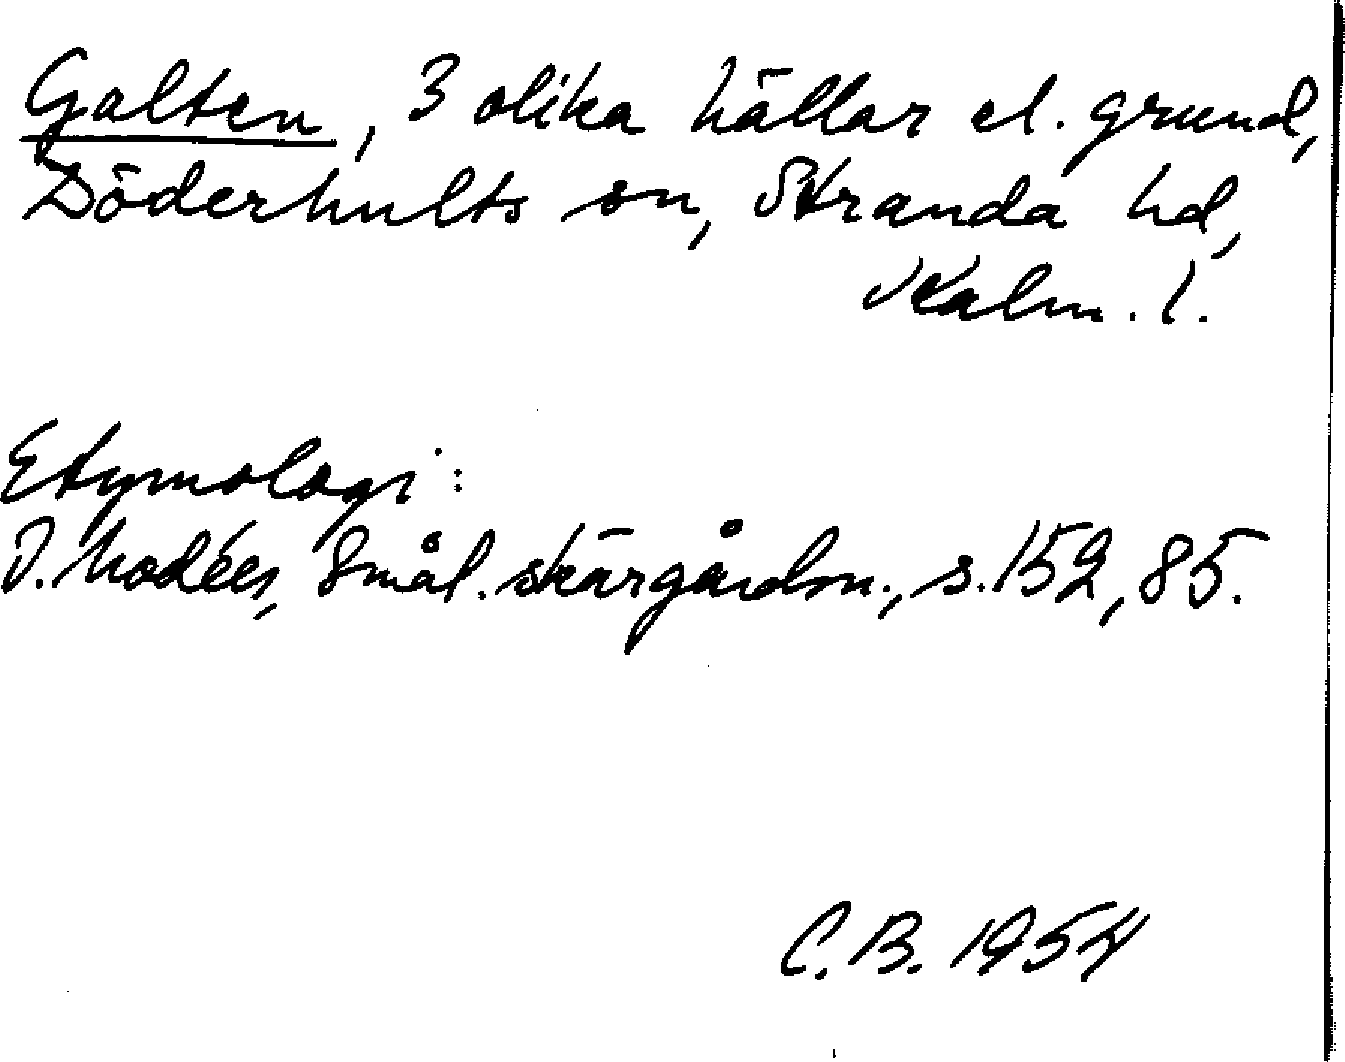 Galten, 3 olika hällar el. grund,
Döderhults sn, Stranda hd,
Kalm. l.
Etymologi:
I. Modéer, Smål. skärgårdsn., s. 152, 85.
C. B. 1954